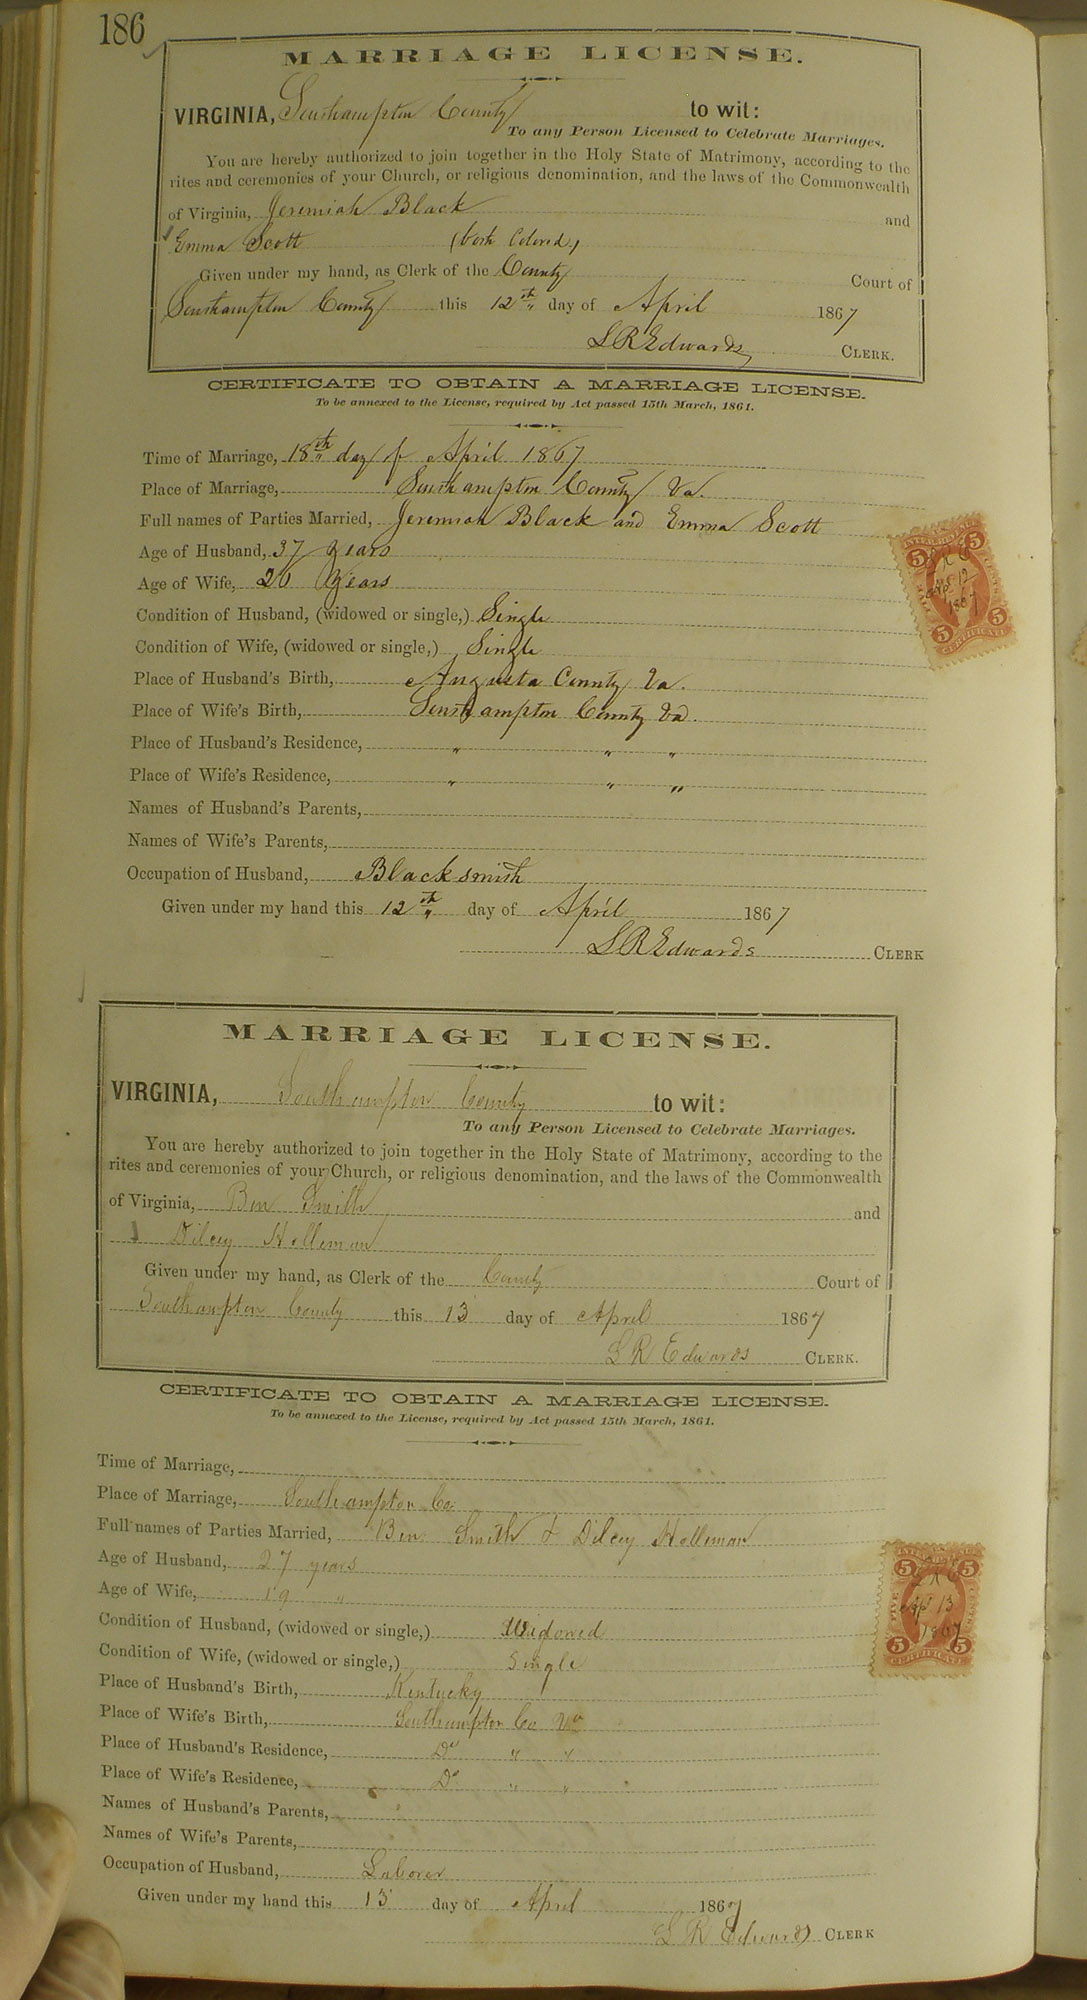 186
MARRIAGE LICENSE.
VIRGINIA, Southampton County to wit:
To any Person Licensed to Celebrate Marriages.
You are hereby authorized to join together in the Holy State of Matrimony, according to the
rites and ceremonies of your Church, or religious denomination, and the laws of the Commonwealth
of Virginia, Jeremiah Black and
Emma Scott (both Colored,)
Given under my hand, as Clerk of the County Court of
Southampton County this 12th day of April 1867
L R Edwards, CLERK.
CERTIFICATE TO OBTAIN A MARRIAGE LICENSE.
To be annexed to the License, required by Act passed 15th March, 1861.
Time of Marriage, 18th day of April 1867
Place of Marriage, Southampton County Va.
Full names of Parties Married, Jeremiah Black and Emma Scott
Age of Husband, 37 years
Age of Wife, 26 Years
Condition of Husband, (widowed or single,) Single
Condition of Wife, (widowed or single,) Single
Place of Husband's Birth, Augusta County Va.
Place of Wife's Birth, Southampton County Va.
Place of Husband's Residence, " " "
Place of Wife's Residence, " " "
Names of Husband's Parents,
Names of Wife's Parents,
Occupation of Husband, Blacksmith
Given under my hand this 12th day of April 1867
L R Edwards CLERK
5 5
L R E
Apl 12
1867
5 5
CERTIFICATE
MARRIAGE LICENSE.
VIRGINIA, Southampton County to wit:
To any Person Licensed to Celebrate Marriages.
You are hereby authorized to join together in the Holy State of Matrimony, according to the
rites and ceremonies of your Church, or religious denomination, and the laws of the Commonwealth
of Virginia, Ben Smith and
Dilcey Holleman
Given under my hand, as Clerk of the County Court of
Southampton County this 13 day of April 1867
L R Edwards CLERK.
CERTIFICATE TO OBTAIN A MARRIAGE LICENSE.
To be annexed to the License, required by Act passed 15th March, 1861.
Time of Marriage,
Place of Marriage, Southampton Co.
Full names of Parties Married, Ben Smith & Dilcey Holleman
Age of Husband, 27 years
Age of Wife, 19 "
Condition of Husband, (widowed or single,) Widowed
Condition of Wife, (widowed or single,) Single
Place of Husband's Birth, Kentucky
Place of Wife's Birth, Southampton Co Va
Place of Husband's Residence, Do " "
Place of Wife's Residence, Do " "
Names of Husband's Parents,
Names of Wife's Parents,
Occupation of Husband, Laborer
Given under my hand this 13 day of April 1867
L R Edwards CLERK
5 5
L R E
Apl 13
1867
5 5
CERTIFICATE